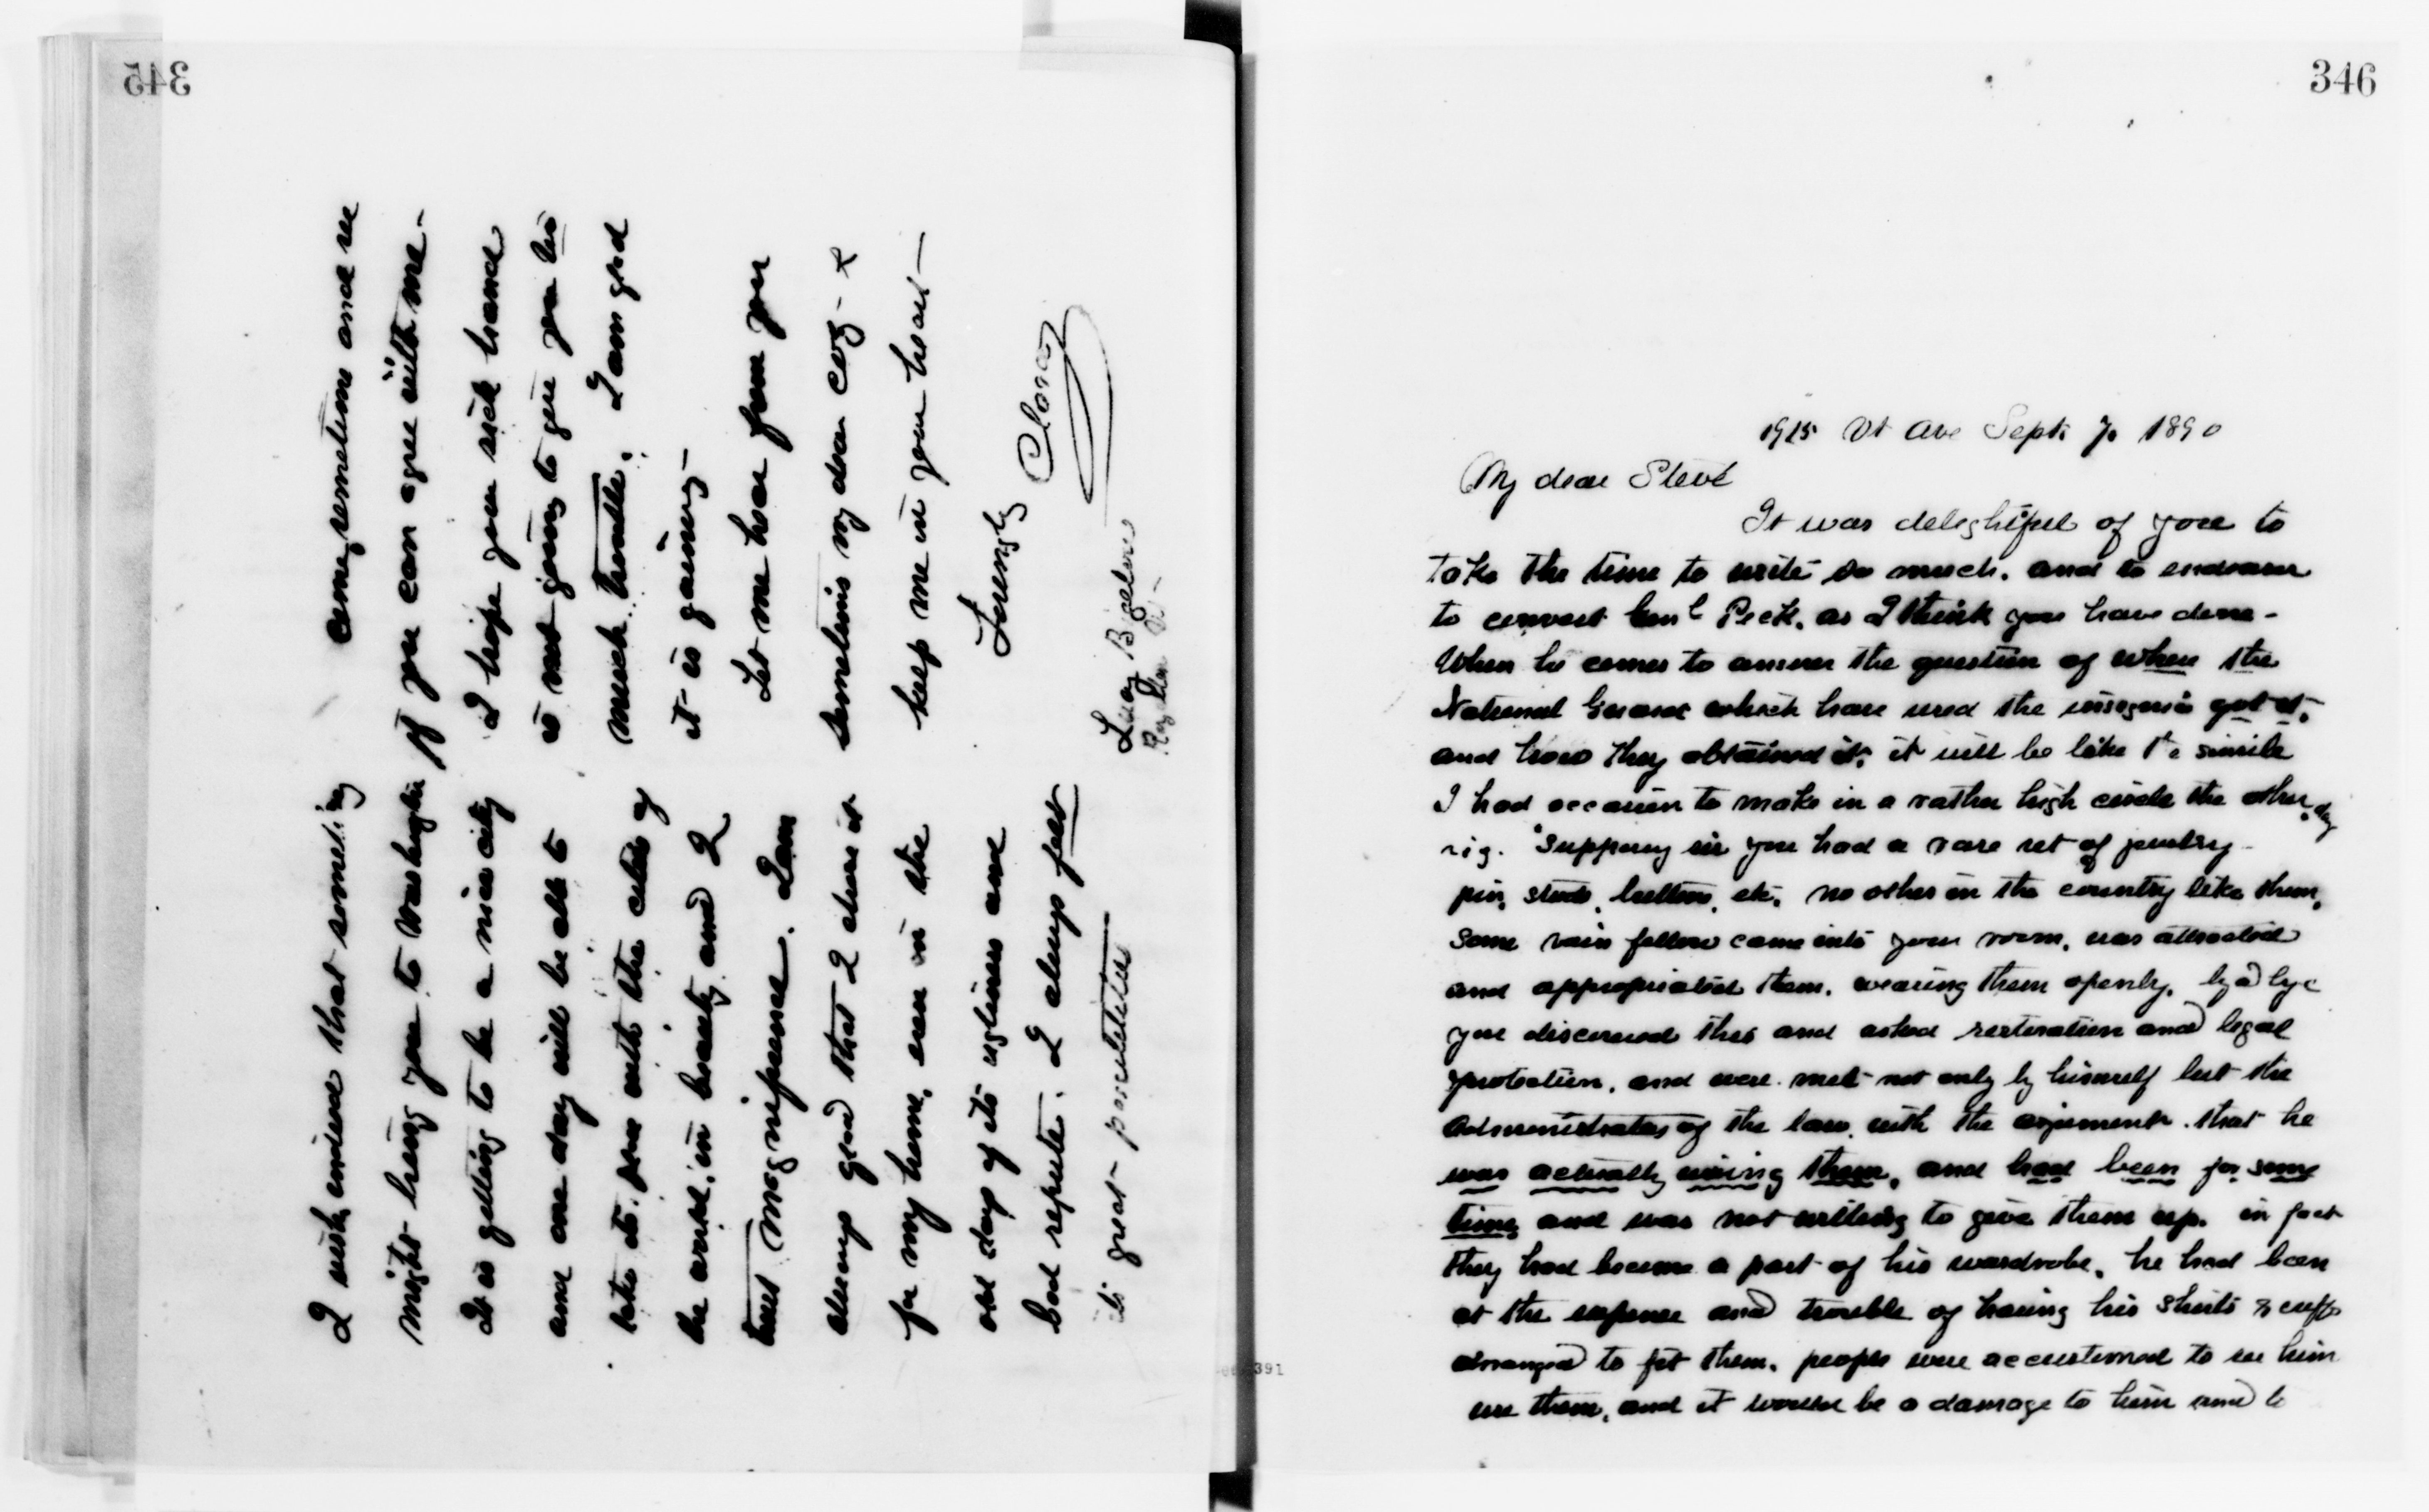 345
I wish, indeed that something
might bring you to Washington
It is getting to be a nice city
and one day will be able to
take its place with the cities of
the world, in beauty and I
trust magnificence. I am
always glad that I chose it
for my home, even in the
old days of its ugliness and
bad repute. I always felt
its great possibilities
come, sometime and see
if you can agree with me -
I hope your sick hand
is not going to give you his
much trouble. I am glad
it is gaining -
Let me hear from you
sometimes my dear coz - &
keep me in your heart -
Lovingly
Clara
Lucy Bigelow
346
1915 Vt Ave Sept. 7. 1890
My dear Steve
It was delightful of you to
take the time to write so much. and to endeavor
to convert Genl Peck, as I think you have done -
When he comes to answer the question of when the
National Guard which have used the insignia got it,
and how they obtained it, it will be like the simile
I had occasion to make in a rather high circle the other day
viz. "Supposing sir you had a rare set of jewelry -
pin, studs, buttons, etc. no other in the country like them,
Some vain fellow came into your room, was attracted
and appropriated them. wearing them openly, by and bye
you discovered this and asked restoration and legal
protection, and were met not only by himself but the
administrators of the law, with the argument. that he
was actually using them, and had been for some
time and was not willing to give them up. in fact
they had become a part of his wardrobe, he had been
at the expense and trouble of having his shirts & cuffs
arranged to fit them, people were accustomed to see him
use them, and it would be a damage to him and to
391